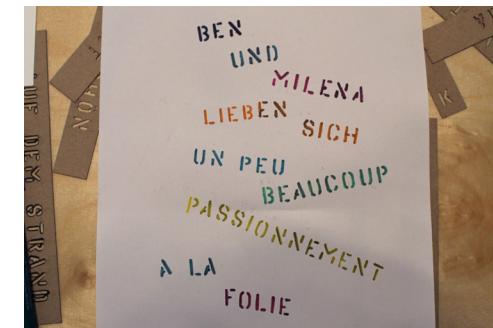 BEN
UND
MILENA
LIEBEN
SICH
UN PEU
BEAUCOUP
PASSIONNEMENT
A LA
FOLIE
DEM STRAND
HON
K